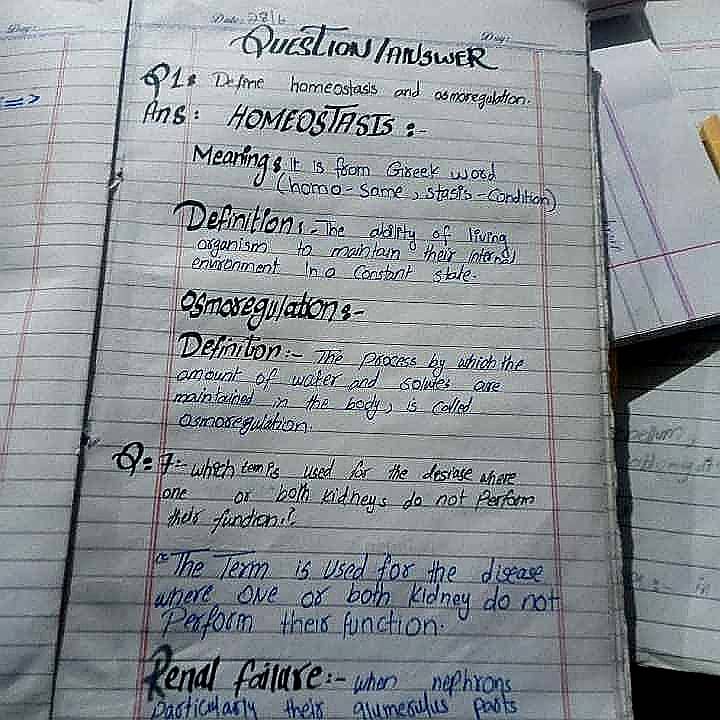 Day:
=>
Date: 28/6
Day:
QUESTION/ANSWER
Q1: Define homeostasis and osmoregulation.
Ans: HOMEOSTASIS :-
Meaning: It is from Greek word
(homo-same, stasis-condition)
Definition:- The ability of living
organism to maintain their internal
environment in a constant state.
Osmoregulation:-
Definition:- The process by which the
amount of water and solutes are
maintained in the body, is called
osmoregulation.
Q:7:- which term is used for the desiase where
one or both kidneys do not perform
their function.?
The Term is used for the disease
where one or both kidney do not
Perform their function.
Renal failure:- when nephrons
particularly their glumerulus parts